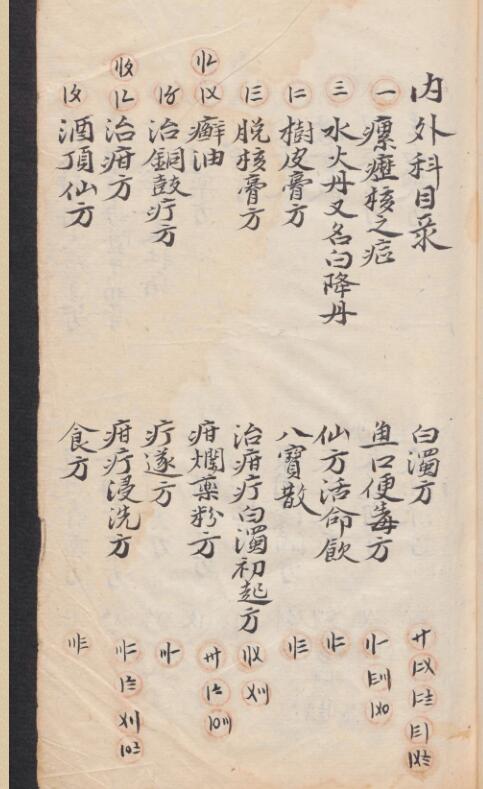 内外科目录
一 瘰癧核之症
三 水火丹又名白降丹
樹皮膏方
脱核膏方
癬油
治銅鼓疔方
治疳方
酒頂仙方
白濁方
魚口便毒方
仙方活命飲
八寶散
治疳疔白濁初起方
疳爛藥粉方
疔遂方
疳疔浸洗方
食方